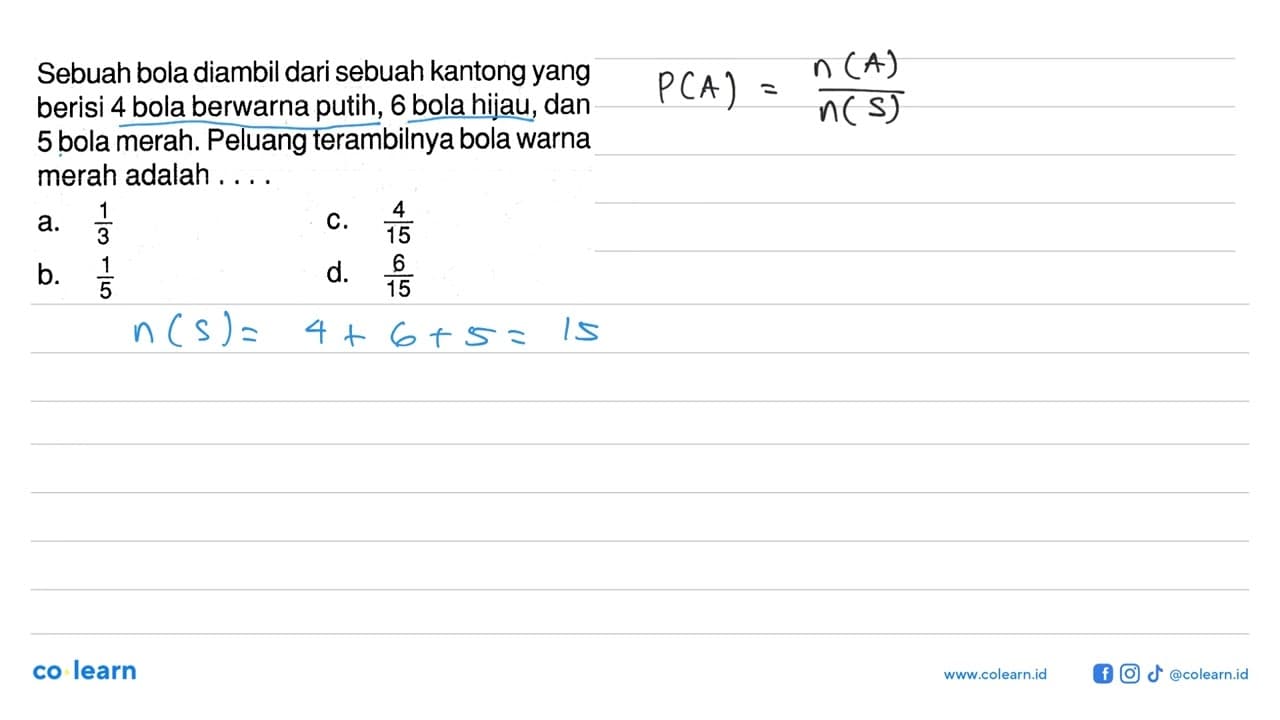 Sebuah bola diambil dari sebuah kantong yang
berisi 4 bola berwarna putih, 6 bola hijau, dan
5 bola merah. Peluang terambilnya bola warna
merah adalah . . . .
a. 1/3 c. 4/15
b. 1/5 d. 6/15
P(A) = n(A)/n(S)
n(S) = 4 + 6 + 5 = 15
co learn
www.colearn.id @colearn.id